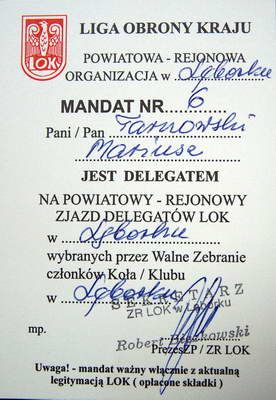 LIGA OBRONY KRAJU
LOK
POWIATOWA - REJONOWA
ORGANIZACJA w Lęborku
MANDAT NR 6
Pani / Pan Tarnowski
Mariusz
JEST DELEGATEM
NA POWIATOWY - REJONOWY
ZJAZD DELEGATÓW LOK
w Lęborku
wybranych przez Walne Zebranie
członków Koła / Klubu
w Lęborku
SEKRETARZ
ZR LOK w Lęborku
mp.
Robert
Prezes ZP / ZR LOK
Uwaga! - mandat ważny włącznie z aktualną
legitymacją LOK ( opłacone składki )